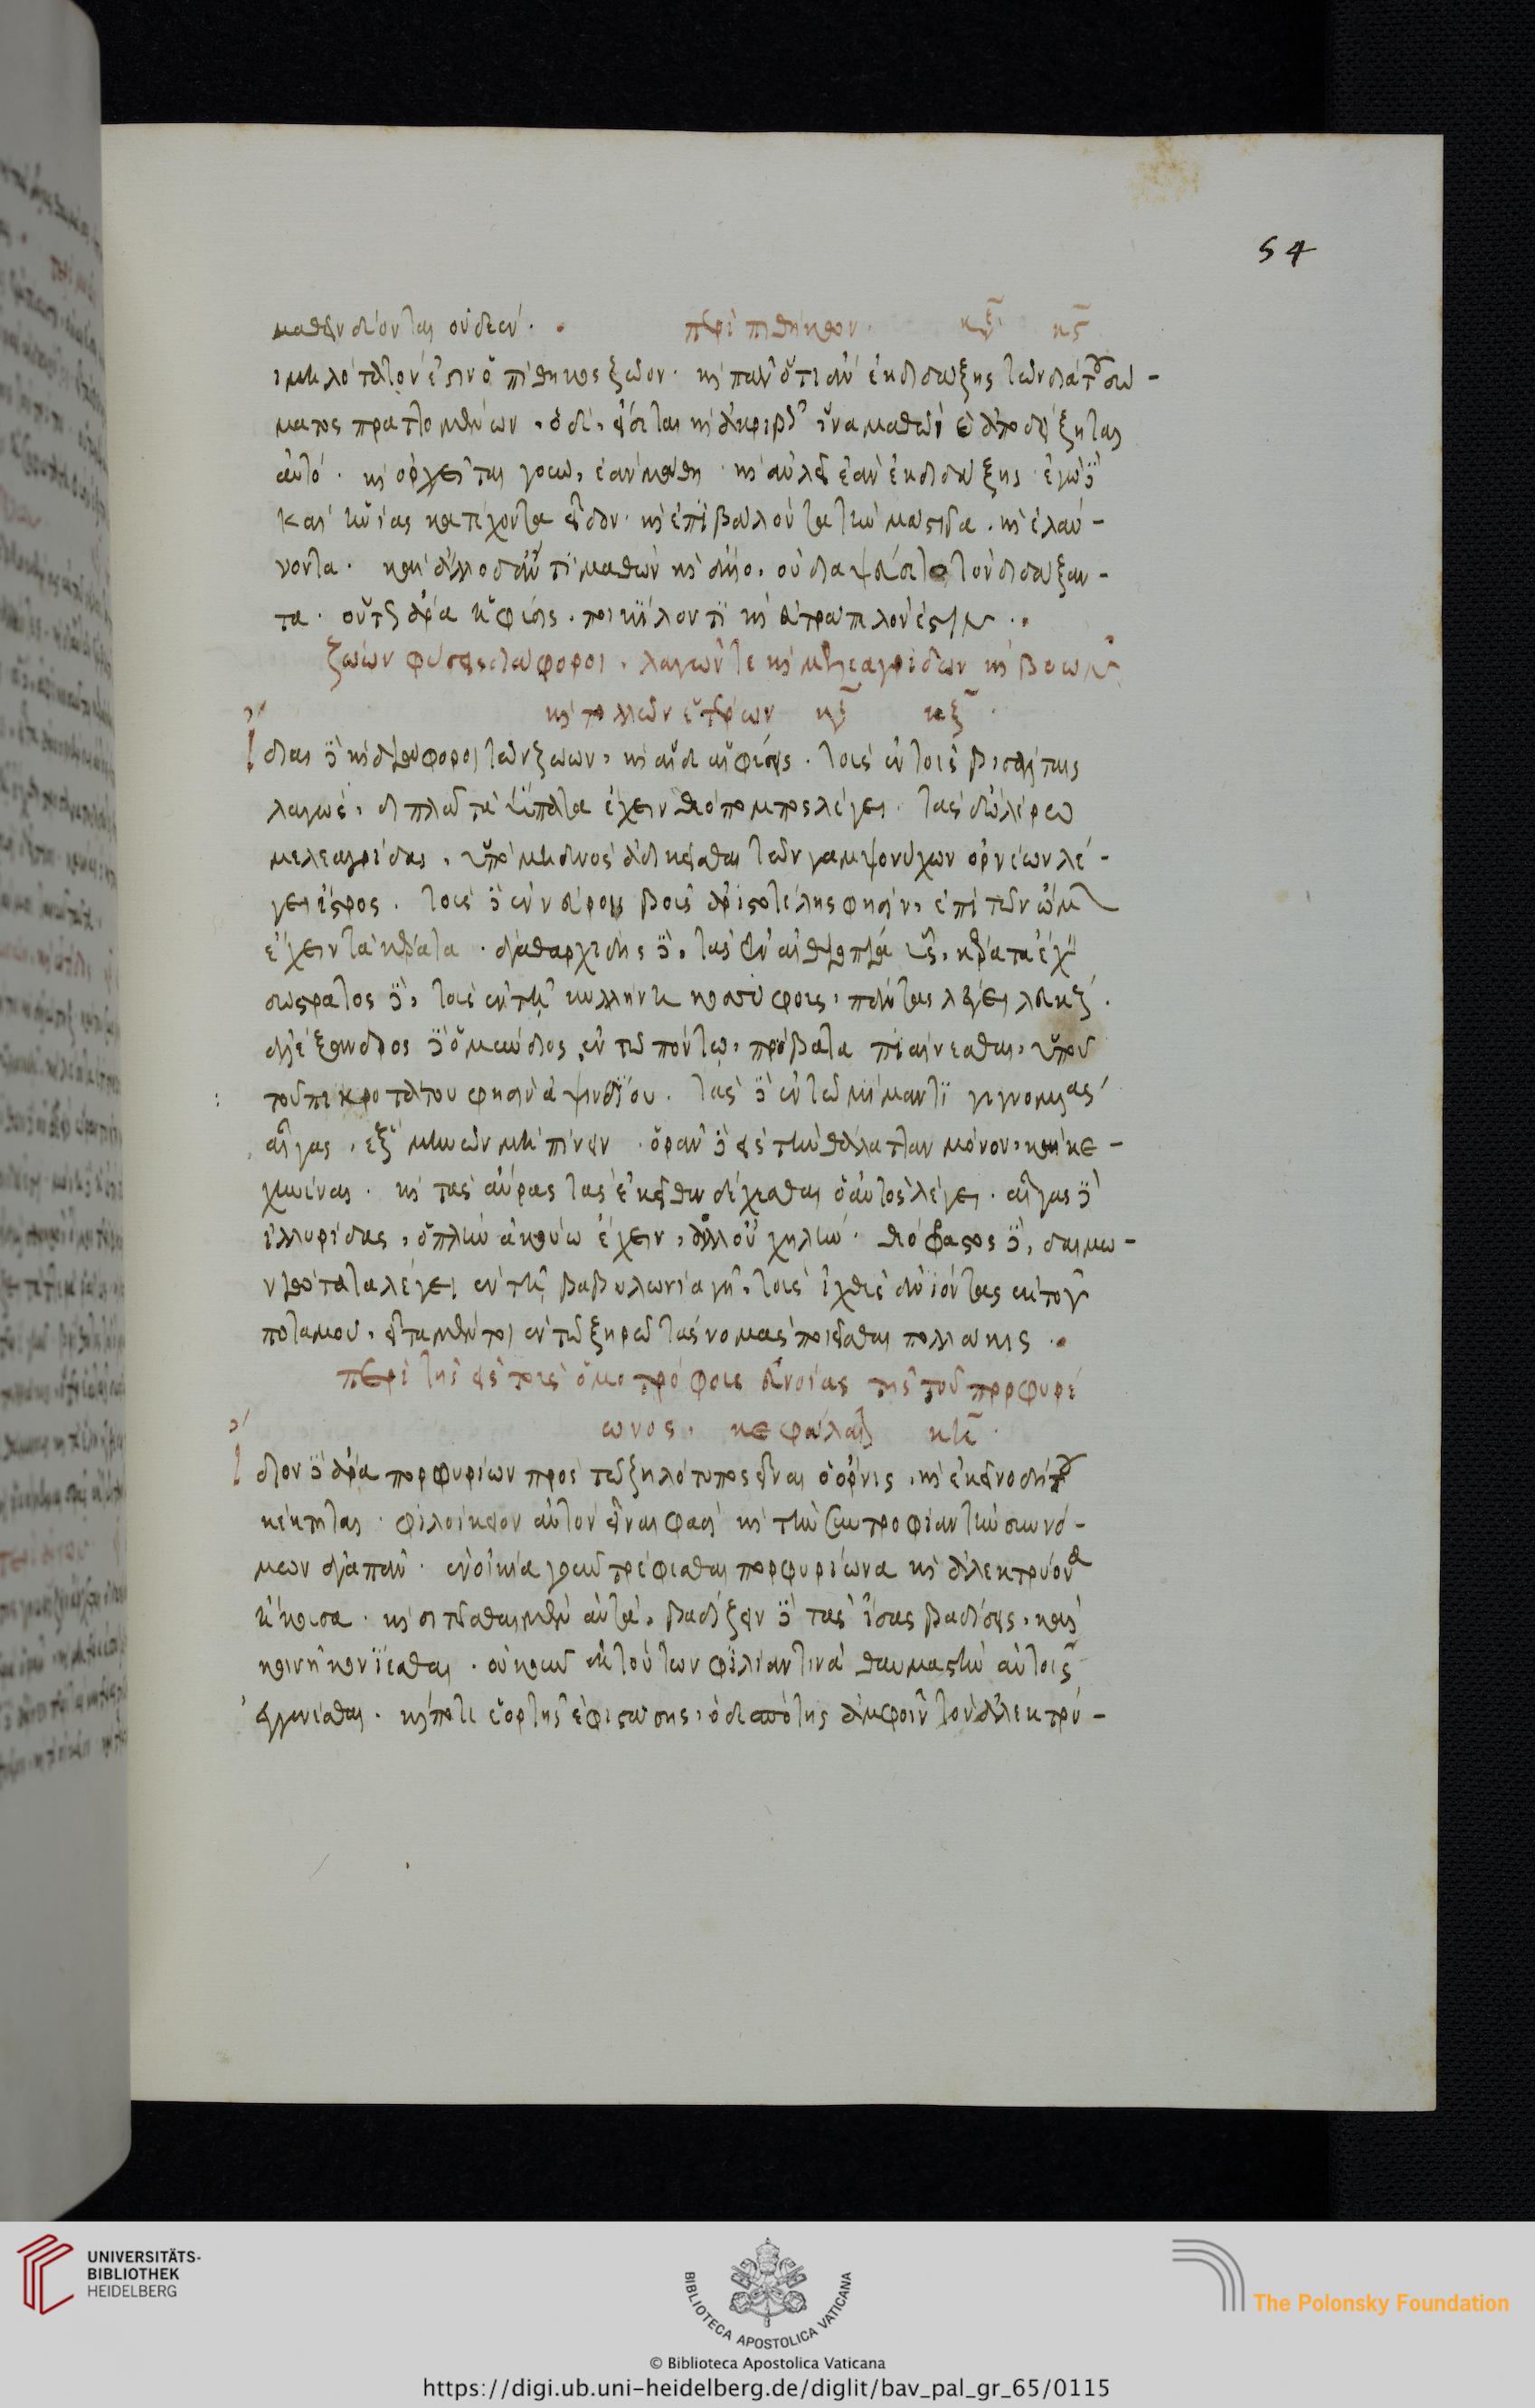 μαθεῖν δέονται οὐδεέν. περὶ πιθήκου. κε κς
ιμηλότατόν ἐστιν ὁ πίθηκος ζῶον. καὶ πᾶν ὅτι ἂν ἐκδιδάξης τῶν διὰ τοῦ σώ-
ματος πραττομένων, ὁ δὲ, εἴσεται καὶ ἀκριβῶς ἵνα μαθὼν ἀποδείξηται
αὐτό. καὶ ὀρχεῖται γοῦν, ἐὰν μάθη. καὶ αὐλεῖ ἐὰν ἐκδιδάξης. ἐγὼ δὲ
καὶ ἡνίας κατέχοντα εἶδον. καὶ ἐπιβάλοντα τὴν μάστιγα. καὶ ἐλαύ-
νοντα. καὶ ἄλλο δ' ἄν τι μαθὼν καὶ ἄλλο, οὐ διαψεύσαιτο τὸν διδάξαν-
τα. οὕτως ἄρα ἡ φύσις, ποικίλον τι καὶ εὐτράπελον ἐστιν.
ζώων φύσεις διάφοροι, λαγῶν τε καὶ μελεαγρίδων καὶ βοῶν
καὶ πολλῶν ἑτέρων κε κζ.
ἴδιαι δὲ καὶ διάφοροι τῶν ζώων, καὶ αἵδε αἱ φύσεις. τοὺς ἐν τοῖς βισάλταις
λαγώς, διπλᾶ τὰ ἥπατα ἔχειν θεόπομπος λέγει. τὰς δὲ ἐν λέρω
μελεαγρίδας, ὑπὸ μηδενὸς ἀδικεῖσθαι τῶν γαμψονύχων ὀρνέων λέ-
γει ἴστρος. τοὺς δὲ ἐν νεύροις βοῦς ἀριστοτέλης φησὶν, ἐπὶ τῶν ὤμων
ἔχειν τὰ κέρατα. ἀγαθαρχίδης δὲ, τὰς ἐν αἰθιοπία ὗς, κέρατα ἔχειν
σώστρατος δὲ, τοὺς ἐν τῆ κυλλήνη κοσσύφους, πάντας λέγει λευκούς.
ἀλέξανδρος δὲ ὁ μύνδιος ἐν τῶ πόντω, πρόβατα πιαίνεσθαι, ὑπὸ
τοῦ πικροτάτου φησὶν ἀψινθίου. τὰς δὲ ἐν τῶ μίμαντι γιγνομένας
αἶγας, ἓξ μηνῶν μὴ πίνειν. ὁρᾶν δὲ εἰς τὴν θάλατταν μόνον, καὶ κε-
χηνέναι. καὶ τὰς αὔρας τὰς ἐκεῖθεν δέχεσθαι ὁ αὐτὸς λέγει. αἶγας δὲ
ἰλλυρίδας, ὁπλὴν ἀκούω ἔχειν, ἀλλ' οὐ χηλήν. θεόφραστος δὲ, δαιμο-
νιώτατα λέγει ἐν τῆ βαβυλωνία γῆ, τοὺς ἰχθῦς ἀνιόντας ἐκ τοῦ
ποταμοῦ, εἶτα μέντοι ἐν τῶ ξηρῶ τὰς νομὰς ποιεῖσθαι πολλάκις.
περὶ τῆς εἰς τοὺς ὁμοτρόφους εὐνοίας τῆς τοῦ πορφυρί
ωνος. κεφάλαιον κη.
ἴδιον δὲ ἄρα πορφυρίων πρὸς τῶ ζηλότυπος εἶναι ὁ ὄρνις, καὶ ἐκεῖνο δήπου
κέκτηται. φιλοίκειον αὐτὸν εἶναι φασὶ καὶ τὴν συντροφίαν τὴν συννό-
μων ἀγαπᾶν. ἐν οἰκία γοῦν τρέφεσθαι πορφυρίωνα καὶ ἀλεκτρυόνα
ἤκουσα. καὶ σιτεῖσθαι μὲν αὐτὰ, βαδίζειν δὲ τὰς ἴσας βαδίσεις, καὶ
κοινῆ κονίεσθαι. οὐκοῦν ἐκ τούτων φιλίαν τινὰ θαυμαστὴν αὐτοῖς
ἐγγενέσθαι. καί ποτε ἑορτῆς ἐφιστάσης, ὁ δεσπότης ἀμφοῖν τὸν ἀλεκτρυ-
54
UNIVERSITÄTS-
BIBLIOTHEK
HEIDELBERG
BIBLIOTECA APOSTOLICA VATICANA
The Polonsky Foundation
© Biblioteca Apostolica Vaticana
https://digi.ub.uni-heidelberg.de/diglit/bav_pal_gr_65/0115